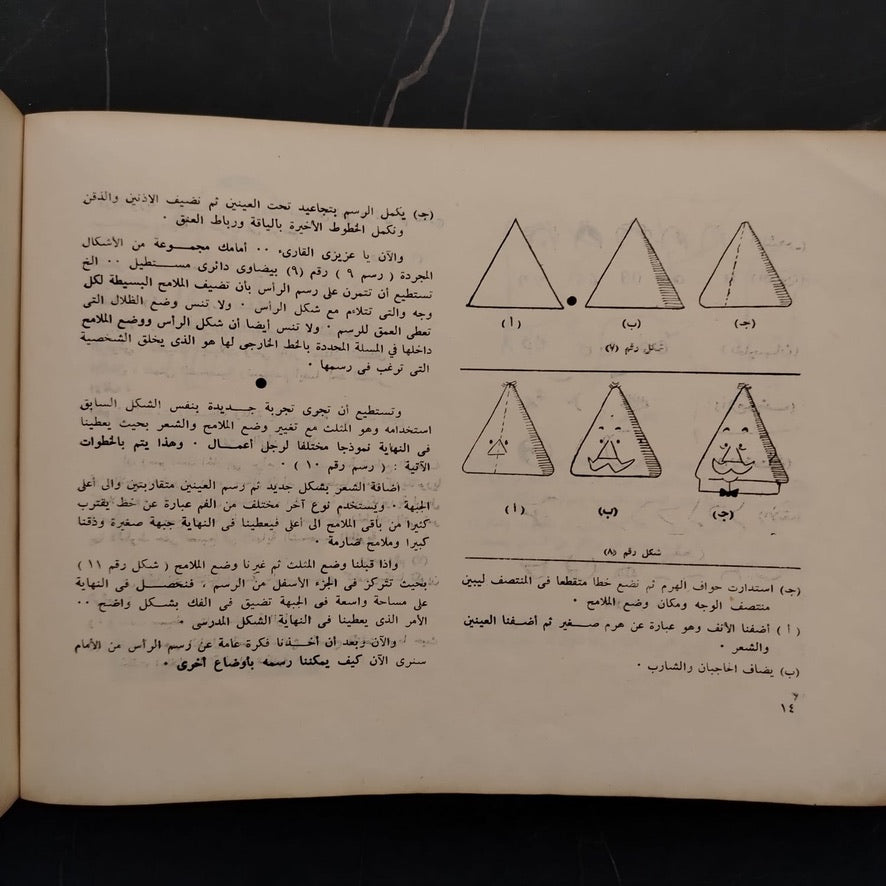 (أ)
(ب)
(جـ)
شكل رقم (٧)
(أ)
(ب)
(جـ)
شكل رقم (٨)
(جـ) استدارت حواف الهرم ثم نضع خطا متقطعا فى المنتصف ليبين
منتصف الوجه ومكان وضع الملامح ٠
( أ ) أضفنا الأنف وهو عبارة عن هرم صـــغير ثم أضـفنا العينين
والشعر ٠
(ب) يضاف الحاجبان والشارب ٠
١٤
(جـ) يكمل الرسم بتجاعيد تحت العينين ثم نضيف الاذنين والذقن
ونكمل الخطوط الأخيرة بالياقة ورباط العنق ٠
والآن يا عزيزى القارىء ٠٠ أمامك مجموعــة من الأشكال
المجردة ( رسم ٩ ) رقم (٩) بيضاوى دائرى مســتطيل ٠٠ الخ
تستطيع أن تتمرن على رسم الرأس بأن تضيف الملامح البسيطة لكل
وجه والتى تتلاءم مع شكل الرأس ٠ ولا تنس وضع الظلال التى
تعطى العمق للرسم ٠ ولا تنس أيضا أن شكل الرأس ووضع الملامح
داخلها فى المسلة المحددة بالخط الخارجى لها هو الذى يخلق الشخصية
التى ترغب فى رسمها ٠
وتستطيع أن تجرى تجربة جـــديدة بنفس الشكل السابق
استخدامه وهو المثلث مع تغيير وضع الملامح والشعر بحيث يعطينا
فى النهاية نموذجا مختلفا لرجل أعمــال ٠ وهذا يتم بالخطوات
الآتية : ( رسم رقم ١٠ ) ٠
اضافة الشعر بشكل جديد ثم رسم العينين متقاربتين والى أعلى
الجبهة ٠ ويستخدم نوع آخر مختلف من الفم عبارة عن خط يقترب
كثيرا من باقى الملامح الى أعلى فيعطينا فى النهاية جبهة صغيرة وذقنا
كبيرا وملامح صارمة ٠
واذا قبلنا وضع المثلث ثم غيرنا وضع الملامح ( شكل رقم ١١ )
بحيث تتركز فى الجزء الأسفل من الرسم ، فنحصــل فى النهاية
على مساحة واسعة فى الجبهة تضيق فى الفك بشــكل واضح ٠٠
الأمر الذى يعطينا فى النهاية الشكل المدرسى ٠
والآن وبعد أن أخــذنا فكرة عامة عن رسم الرأس من الأمام
سنرى الآن كيف يمكننا رسمه بأوضاع أخرى ٠